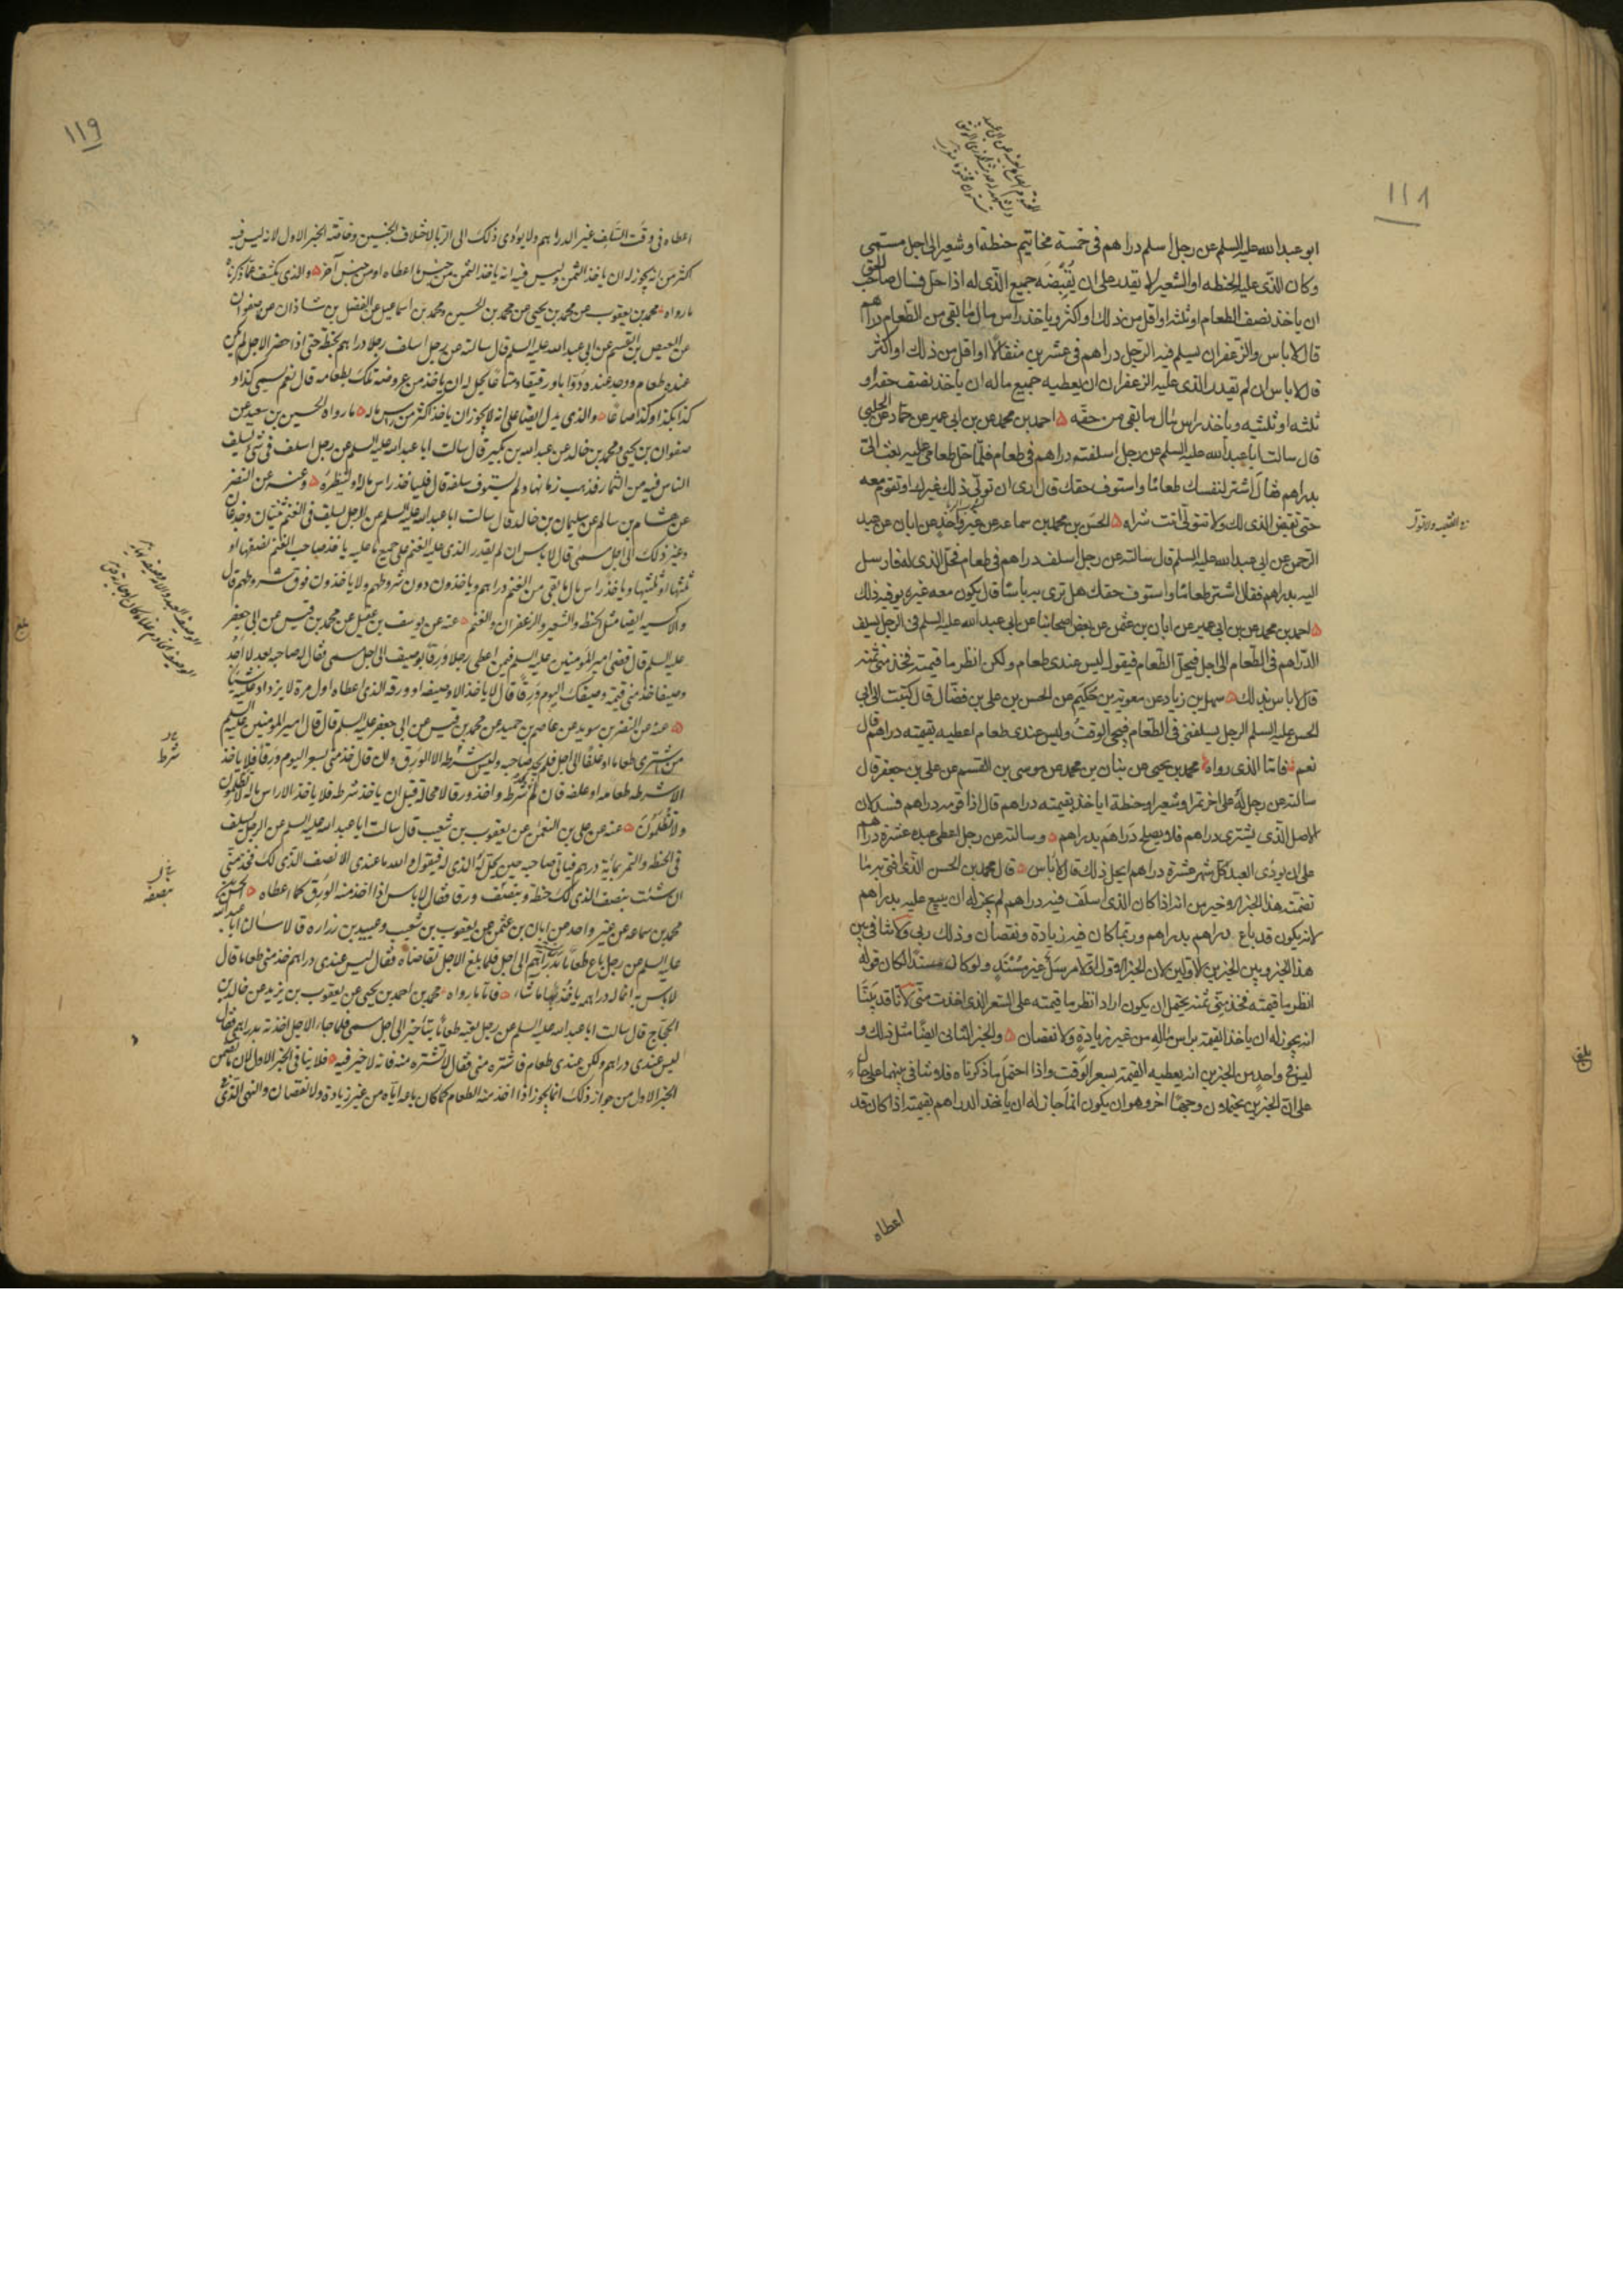 ١١٨
ابو عبد الله عليه السلم عن رجل اسلم دراهم فى خمسة مخاتيم حنطة او شعير الى اجل مسمى
وكان الذى عليه الحنطه او الشعير لا يقدر على ان يُقبضه جميع الذى له اذا حل فسال صاحب الحق
ان ياخذ نصف الطعام او ثلثه او اقل من ذلك او اكثر وياخذ راس مال ما بقى من الطعام دراهم
قال لا باس والزعفران يسلم فيه الرجل دراهم فى عشرين مثقالا او اقل من ذلك او اكثر
قال لا باس ان لم يقدر الذى عليه الزعفران ان يعطيه جميع ماله ان ياخذ نصف حقه او
ثلثه او ثلثيه وياخذ راس مال ما بقى من حقه احمد بن محمد عن بن ابى عمير عن حماد عن الحلبى
قال سالت ابا عبد الله عليه السلم عن رجل اسلفته دراهم فى طعام فلما حل طعامى عليه بعث الىّ
بدراهم فقال اشتر لنفسك طعاما واستوف حقك قال ارى ان تولى ذلك غيرك او تقوم معه
حتى تقبض الذى لك ولا تتولى انت شراه الحسن بن محمد بن سماعه عن غير واحد عن ابان عن عبد
الرحمن عن ابى عبد الله عليه السلم قال سالته عن رجل اسلف دراهم فى طعام فحل الذى له فارسل
اليه بدراهم فقال اشتر طعاما واستوف حقك هل ترى به باسا قال يكون معه غيره يوفيه ذلك
احمد بن محمد عن بن ابى عمير عن ابان بن عثمن عن بعض اصحابنا عن ابى عبد الله عليه السلم فى الرجل يسلف
الدراهم فى الطعام الى اجل فيحل الطعام فيقول ليس عندى طعام ولكن انظر ما قيمته فخذ منى ثمنه
قال لا باس بذلك سهل بن زياد عن معوية بن حكيم عن الحسن بن على بن فضال قال كتبت الى ابى
الحسن عليه السلم الرجل يسلفنى فى الطعام فيجى الوقت وليس عندى طعام اعطيه بقيمته دراهم قال
نعم فاما الذى رواه محمد بن يحيى عن بنان بن محمد عن موسى بن القسم عن على بن جعفر قال
سالته عن رجل له على اخر تمر او شعير او حنطة اياخذ بقيمته دراهم قال اذا قومه دراهم فسد لان
الاصل الذى يشترى دراهم فلا يصلح دراهم بدراهم وسالته عن رجل اعطى عبده عشرة دراهم
على ان يودى العبد كل شهر عشرة دراهم ايحل ذلك قال لا باس قال محمد بن الحسن الذى افتى به ما
تضمنه هذا الخبر الاخير من انه اذا كان الذى اسلف فيه دراهم لم يجز له ان يبيع عليه بدراهم
لانه يكون قد باع دراهم بدراهم وربما كان فيه زيادة ونقصان وذلك ربى ولا تنافى بين
هذا الخبر وبين الخبرين الاولين لان الخبر الاول مرسل غير مسند ولو كان مسندا لكان قوله
انظر ما قيمته فخذ منى ثمنه يحتمل ان يكون اراد انظر ما قيمته على السعر الذى اخذت منى لانا قد بينا
انه يجوز له ان ياخذ القيمة براس ماله من غير زيادة ولا نقصان والخبر الثانى ايضا مثل ذلك و
ليس فى واحد من الخبرين انه يعطيه القيمة بسعر الوقت واذا احتمل ما ذكرناه فلا تنافى بينهما على حال
على ان الخبرين يحتملان وجها اخر وهو ان يكون انما جاز له ان ياخذ الدراهم بقيمته اذا كان قد
اعطاه
بلغ
١١٩
اعطاه فى وقت السلف غير الدراهم ولا يودى ذلك الى الربا لاختلاف الجنسين وخاصة الخبر الاول لانه ليس فيه
اكثر من انه يجوز له ان ياخذ الثمن وليس فيه انه ياخذ الثمن من جنس ما اعطاه او من جنس آخر والذى يكشف عما ذكرناه
ما رواه محمد بن يعقوب عن محمد بن يحيى عن محمد بن الحسين ومحمد بن اسماعيل عن الفضل بن شاذان عن صفوان
عن العيص بن القسم عن ابى عبد الله عليه السلم قال سالته عن رجل اسلف رجلا دراهم بحنطة حتى اذا حضر الاجل لم يكن
عنده طعام ووجد عنده دوابا ورقيقا ومتاعا يحل له ان ياخذ من عروضه تلك بطعامه قال نعم يسمى كذا و
كذا بكذا وكذا صاعا والذى يدل ايضا على انه لا يجوز ان ياخذ اكثر من راس ماله ما رواه الحسين بن سعيد عن
صفوان بن يحيى ومحمد بن خالد عن عبد الله بن بكير قال سالت ابا عبد الله عليه السلم عن رجل اسلف فى شى يسلف
الناس فيه من الثمار فذهب زمانها ولم يستوف سلفه قال فلياخذ راس ماله او لينظره وعنه عن النضر
عن هشام بن سالم عن سليمان بن خالد قال سالت ابا عبد الله عليه السلم عن الرجل يسلف فى الغنم ثنيان وجذعان
وغير ذلك الى اجل مسمى قال لا باس ان لم يقدر الذى عليه الغنم على جميع ما عليه ياخذ صاحب الغنم نصفها او
ثلثها او ثلثيها وياخذ راس مال ما بقى من الغنم دراهم وياخذون دون شروطهم ولا ياخذون فوق شروطهم قال
والاكسيه ايضا مثل الحنطه والشعير والزعفران والغنم عنه عن يوسف بن عقيل عن محمد بن قيس عن ابى جعفر
عليه السلم قال قضى امير المومنين عليه السلم فيمن اعطى رجلا ورقا بوصيف الى اجل مسمى فقال له صاحبه بعد لا اجد
وصيفا خذ منى قيمة وصيفك اليوم ورقا قال لا ياخذ الا وصيفه او ورقه الذى اعطاه اول مرة لا يزداد عليه شيئا
عنه عن النضر بن سويد عن عاصم بن حميد عن محمد بن قيس عن ابى جعفر عليه السلم قال قال امير المومنين عليه السلم
من اشترى طعاما او علفا الى اجل فلم يجد صاحبه وليس شرطه الا الورق وان قال خذ منى بسعر اليوم ورقا فلا ياخذ
الا شرطه طعامه او علفه فان لم يجد شرطه واخذ ورقا لا محالة قبل ان ياخذ شرطه فلا ياخذ الا راس ماله لا تظلمون
ولا تظلمون عنه عن على بن النعمن عن يعقوب بن شعيب قال سالت ابا عبد الله عليه السلم عن الرجل يسلف
فى الحنطه والتمر بمائة درهم فياتى صاحبه حين يحل له الذى له فيقول والله ما عندى الا نصف الذى لك فخذ منى
ان شئت بنصف الذى لك حنطة وبنصف ورقا فقال لا باس اذا اخذ منه الورق كما اعطاه الحسن بن
محمد بن سماعه عن غير واحد عن ابان بن عثمن عن يعقوب بن شعيب وعبيد بن زراره قالا سالنا ابا عبد الله
عليه السلم عن رجل باع طعاما بدراهم الى اجل فلما بلغ الاجل تقاضاه فقال ليس عندى دراهم خذ منى طعاما قال
لا باس به انما له دراهم ياخذ بها ما شاء فاما ما رواه محمد بن احمد بن يحيى عن يعقوب بن يزيد عن خالد بن
الحجاج قال سالت ابا عبد الله عليه السلم عن رجل بعته طعاما بتاخير الى اجل مسمى فلما جاء الاجل اخذته بدراهمى فقال
ليس عندى دراهم ولكن عندى طعام فاشتره منى فقال لا تشتره منه فانه لا خير فيه فلا ينافى الخبر الاول لان ما تضمن
الخبر الاول من جواز ذلك انما يجوز اذا اخذ منه الطعام كما كان باعه اياه من غير زيادة ولا نقصان والنهى الذى
شرط
بنصفه
بلغ